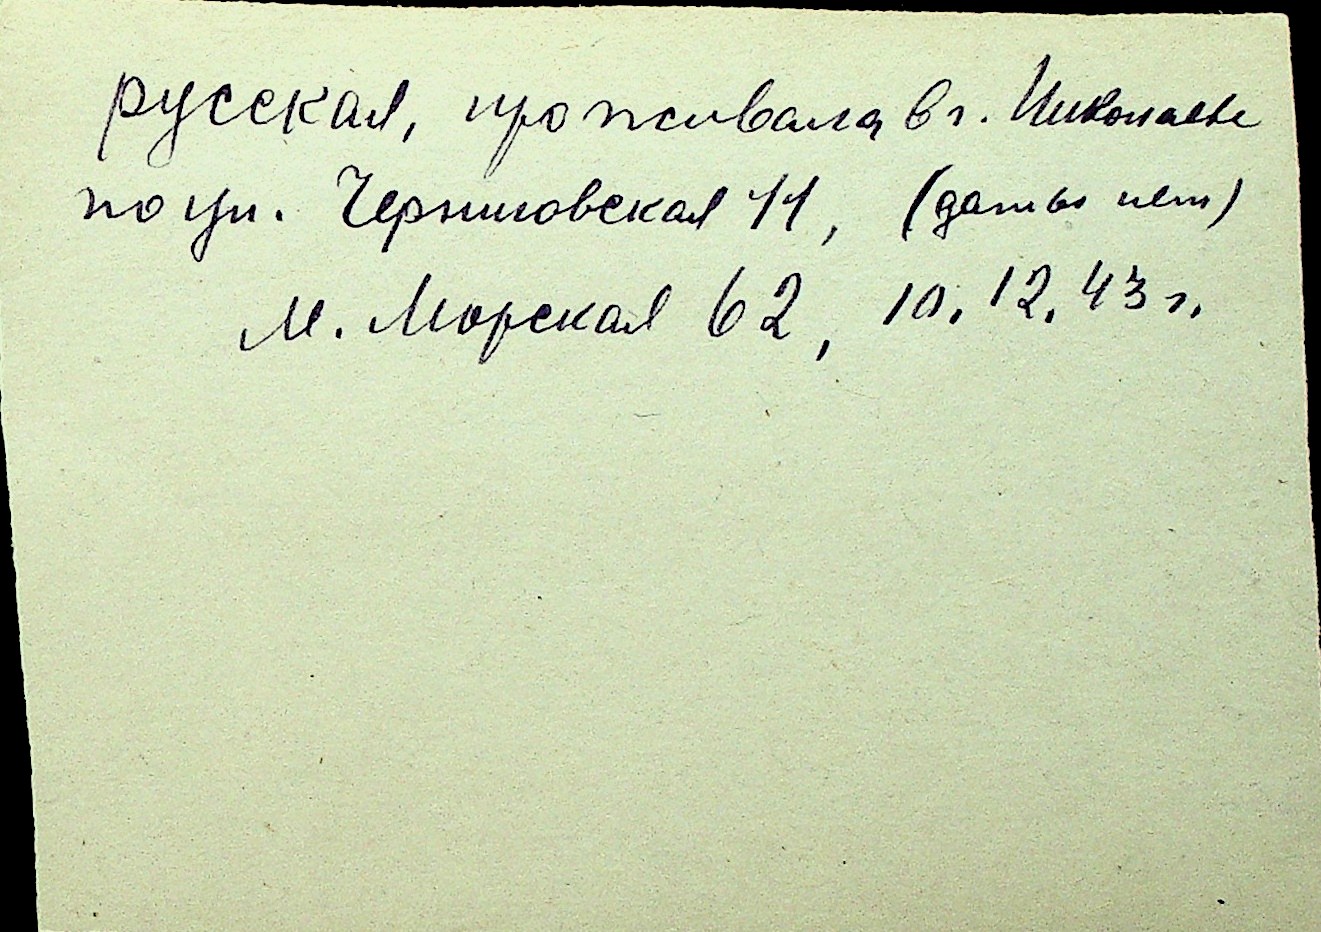 русская, проживала в г. Николаеве
по ул. Черниговская 11, (даты нет)
М. Морская 62, 10.12.43 г.